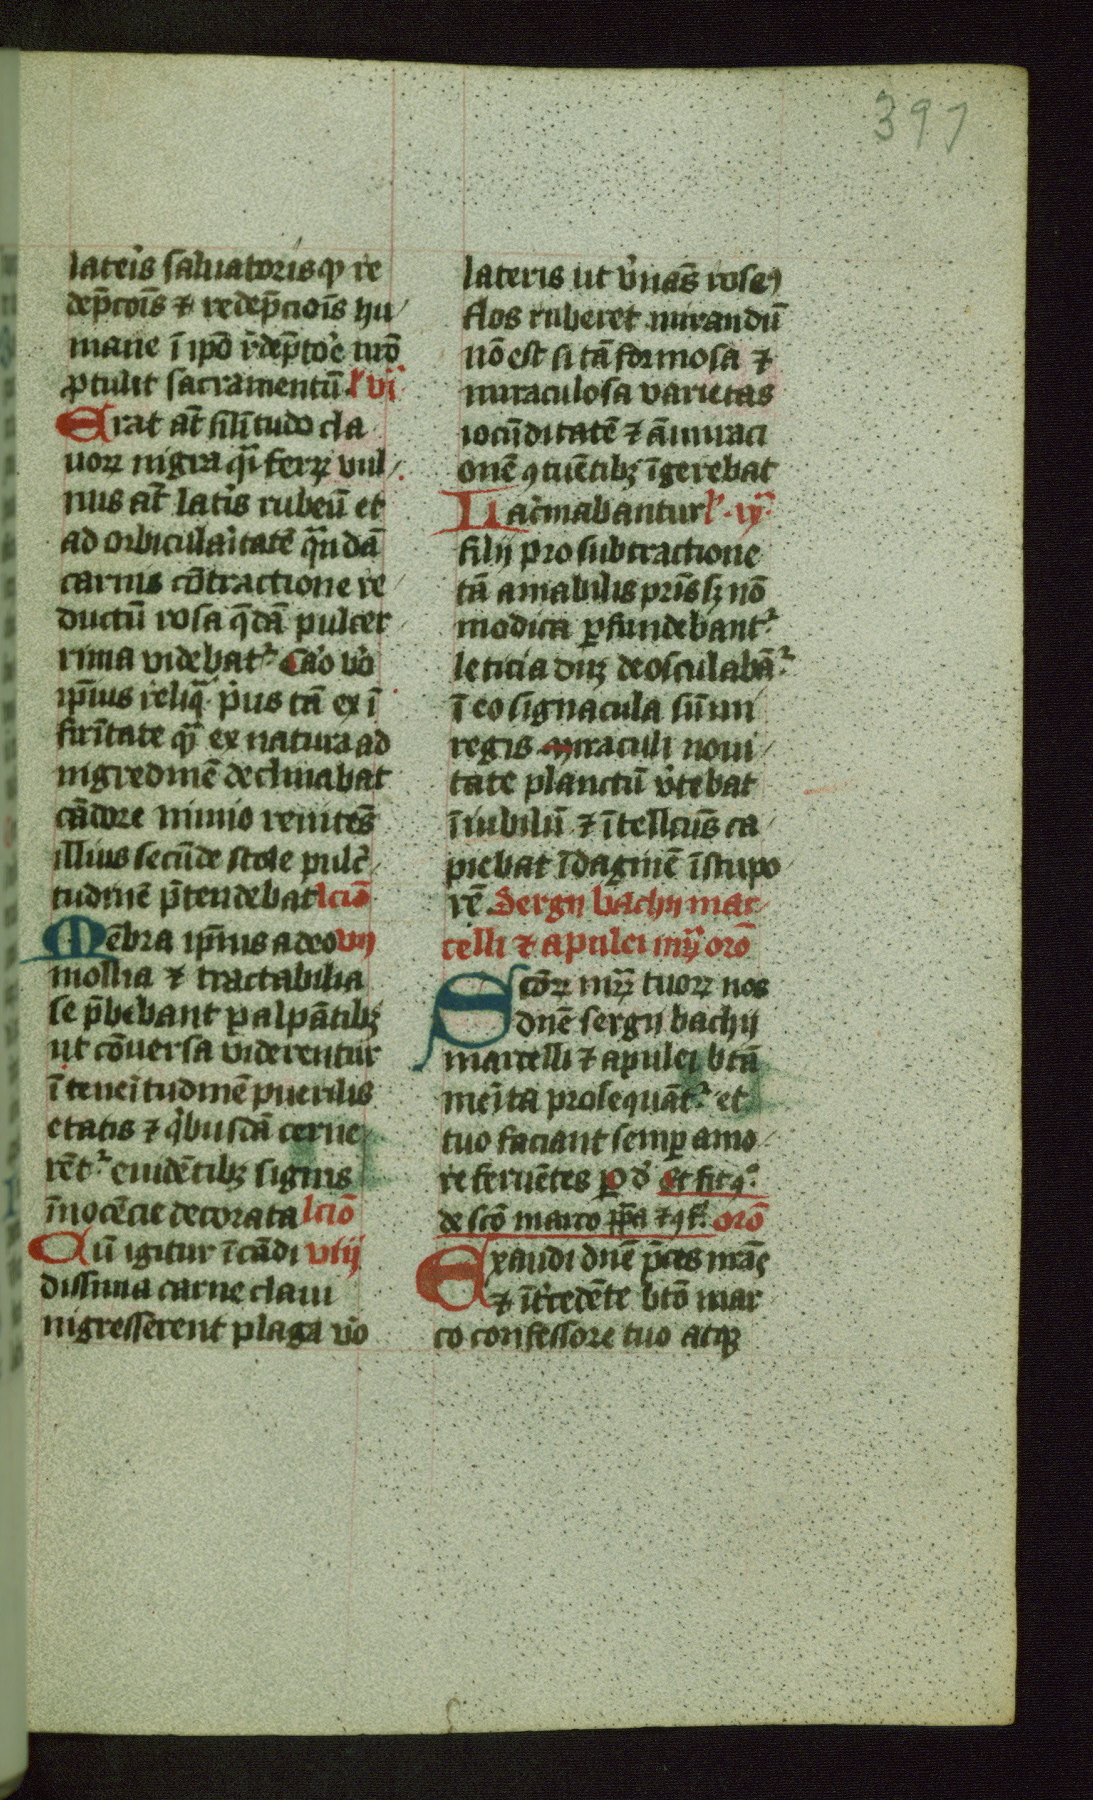 397
lateris saluatoris q̄ re
dēpcōis ⁊ redēpciōis hu
mane ī ipō rdēptore nrō
ꝓtulit sacramentū l' vi
Erat at̄ silitudo cla
uorꝝ nigra qi ferrj vul
nus at̄ latis rubeū et
ad orbiculāitatē quādā
carnis cōtractione re
ductū rosa qdā pulcer
rima videbatr Caro vo
ipius reliq̄ prius tā ex ī
firitate q̄ ex natura ad
nigredinē declinabat
cādore nimio renitēs
illius secūde stole pulcr
tudinē p̄tendebat lciō
Mēbra ipius adeo vij
mollia ⁊ tractabilia
se p̄bebant palpātibꝫ
ut cōuersa viderentur
ī teneitudinē puerilis
etatis ⁊ qbusdā cerne
rētr euidētibꝫ signis
īnocēcie decorata lciō
Cū igitur ī cādi viij
dissima carne claui
nigresserent plaga vo
lateris ut v'nās roseꝯ
flos ruberet mirandū
nō est si tā formosa ⁊
miraculosa varietas
iocūditatē ⁊ āmiraci
onē ꝯtuētibꝫ īgerebat
Lacrimabantur l' ix
filij pro subtractione
tā amabilis pris sꝫ nō
modica ꝑfundebantr
leticia dūꝫ deosculabār
ī eo signacula sūmi
regis miraculi noui
tate planctū v'tebat
ī iubilū ⁊ ītellcūs ca
piebat īdaginē ī stupo
rē Sergij bachij mar
celli ⁊ apulei mr̄ orō
Scōrꝝ mr̄ tuorꝝ nos
dnē sergij bachij
marcelli ⁊ apulei btā
meīta prosequātr et
tuo faciant semꝑ amo
re feruētes ꝑ d' Et fit ꝯᵒ
de scō marco ppa ⁊ ꝯf. orō
Exaudi dnē p̄ces nrās
⁊ īt'cedēte btō mar
co confessore tuo atqꝫ